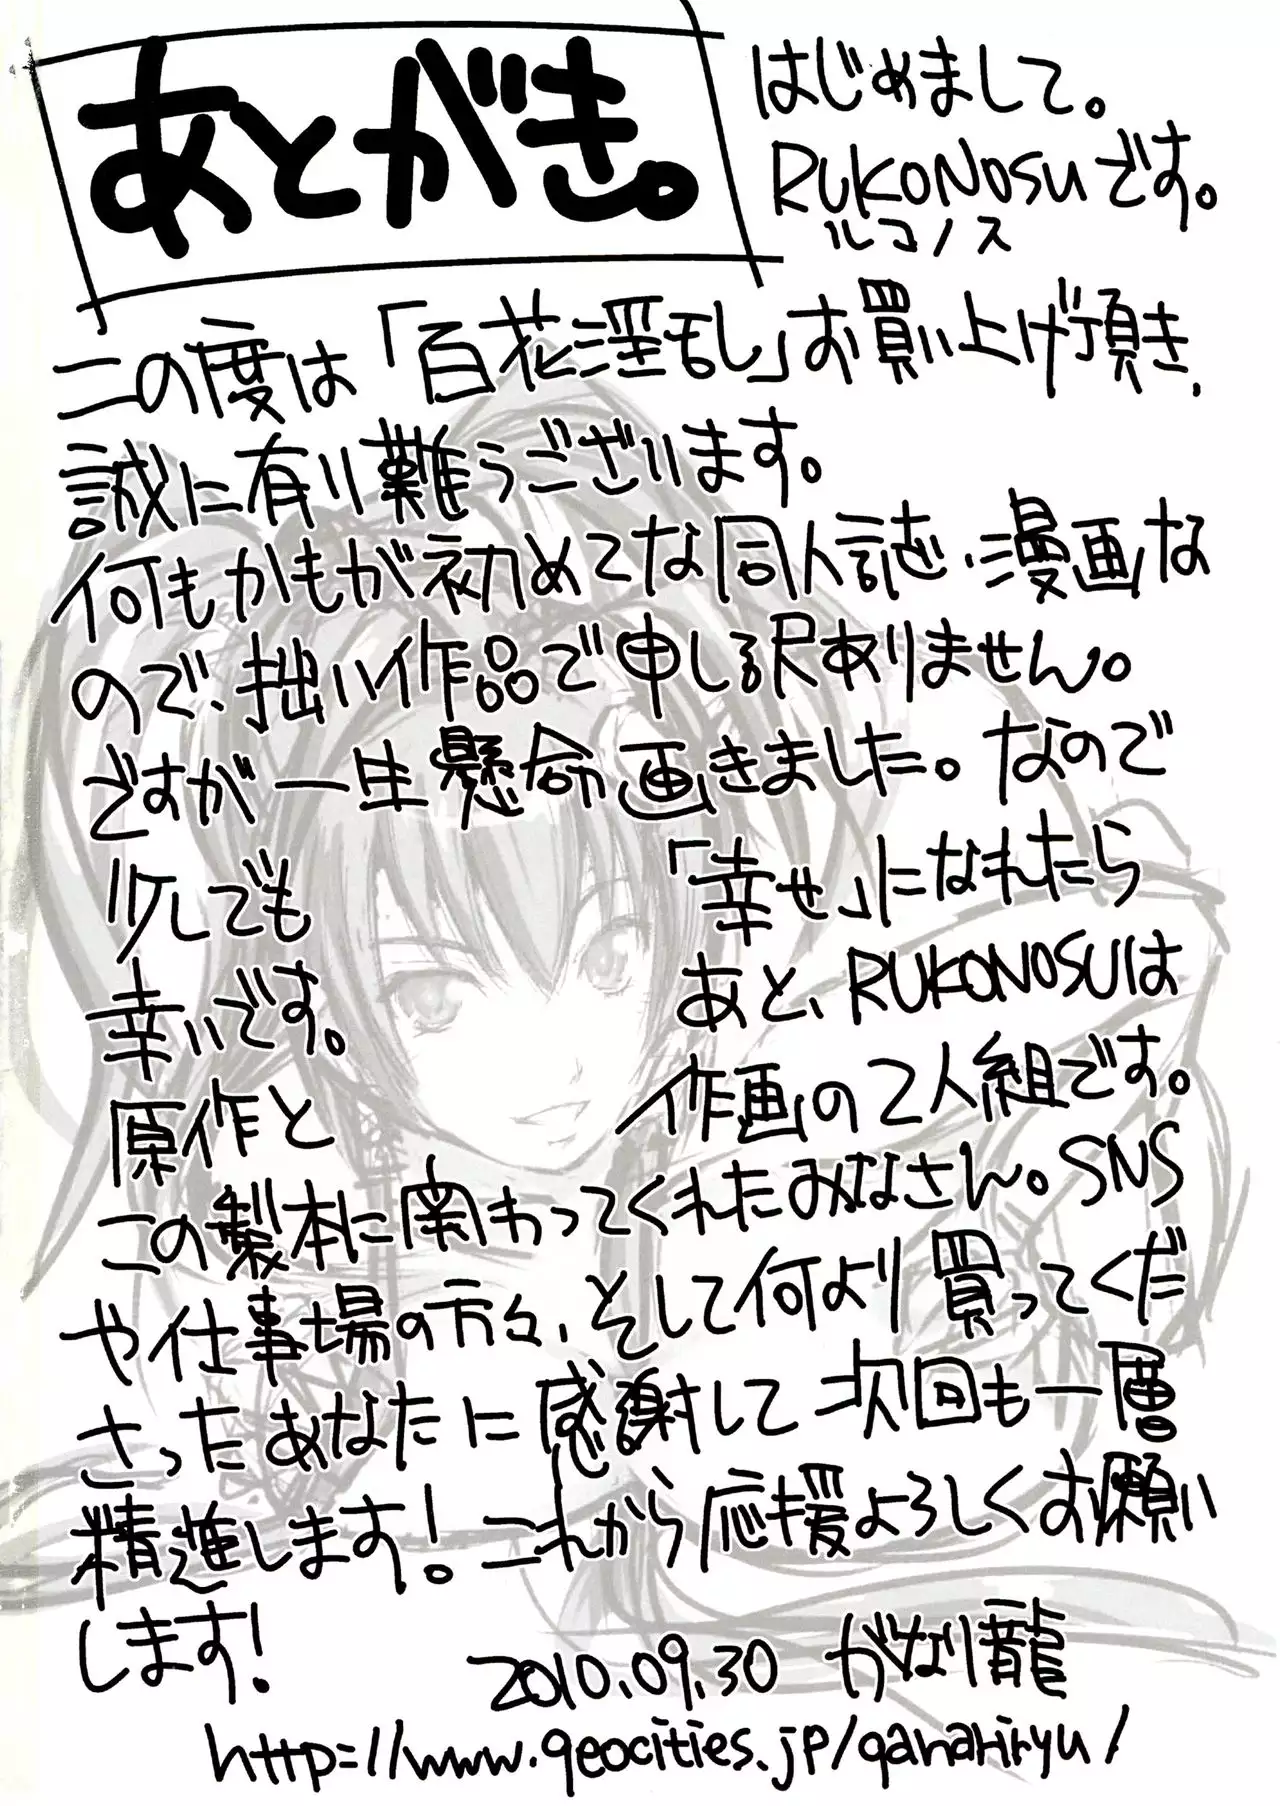 あとがき。
はじめまして。
RUKONOSUです。
ルコノス
この度は「百花淫乱」お買い上げ頂き、
誠に有り難うございます。
何もかもが初めてな同人誌・漫画な
ので、拙い作品で申し訳ありません。
ですが一生懸命画きました。なので
少しでも「幸せ」になれたら
幸いです。あと、RUKONOSUは
原作と作画の2人組です。
この製本に関わってくれたみなさん。SNS
や仕事場の方々、そして何より買ってくだ
さったあなたに感謝して次回も一層
精進します!これから応援よろしくお願い
します!
2010.09.30 がなり龍
http://www.geocities.jp/ganariryu/